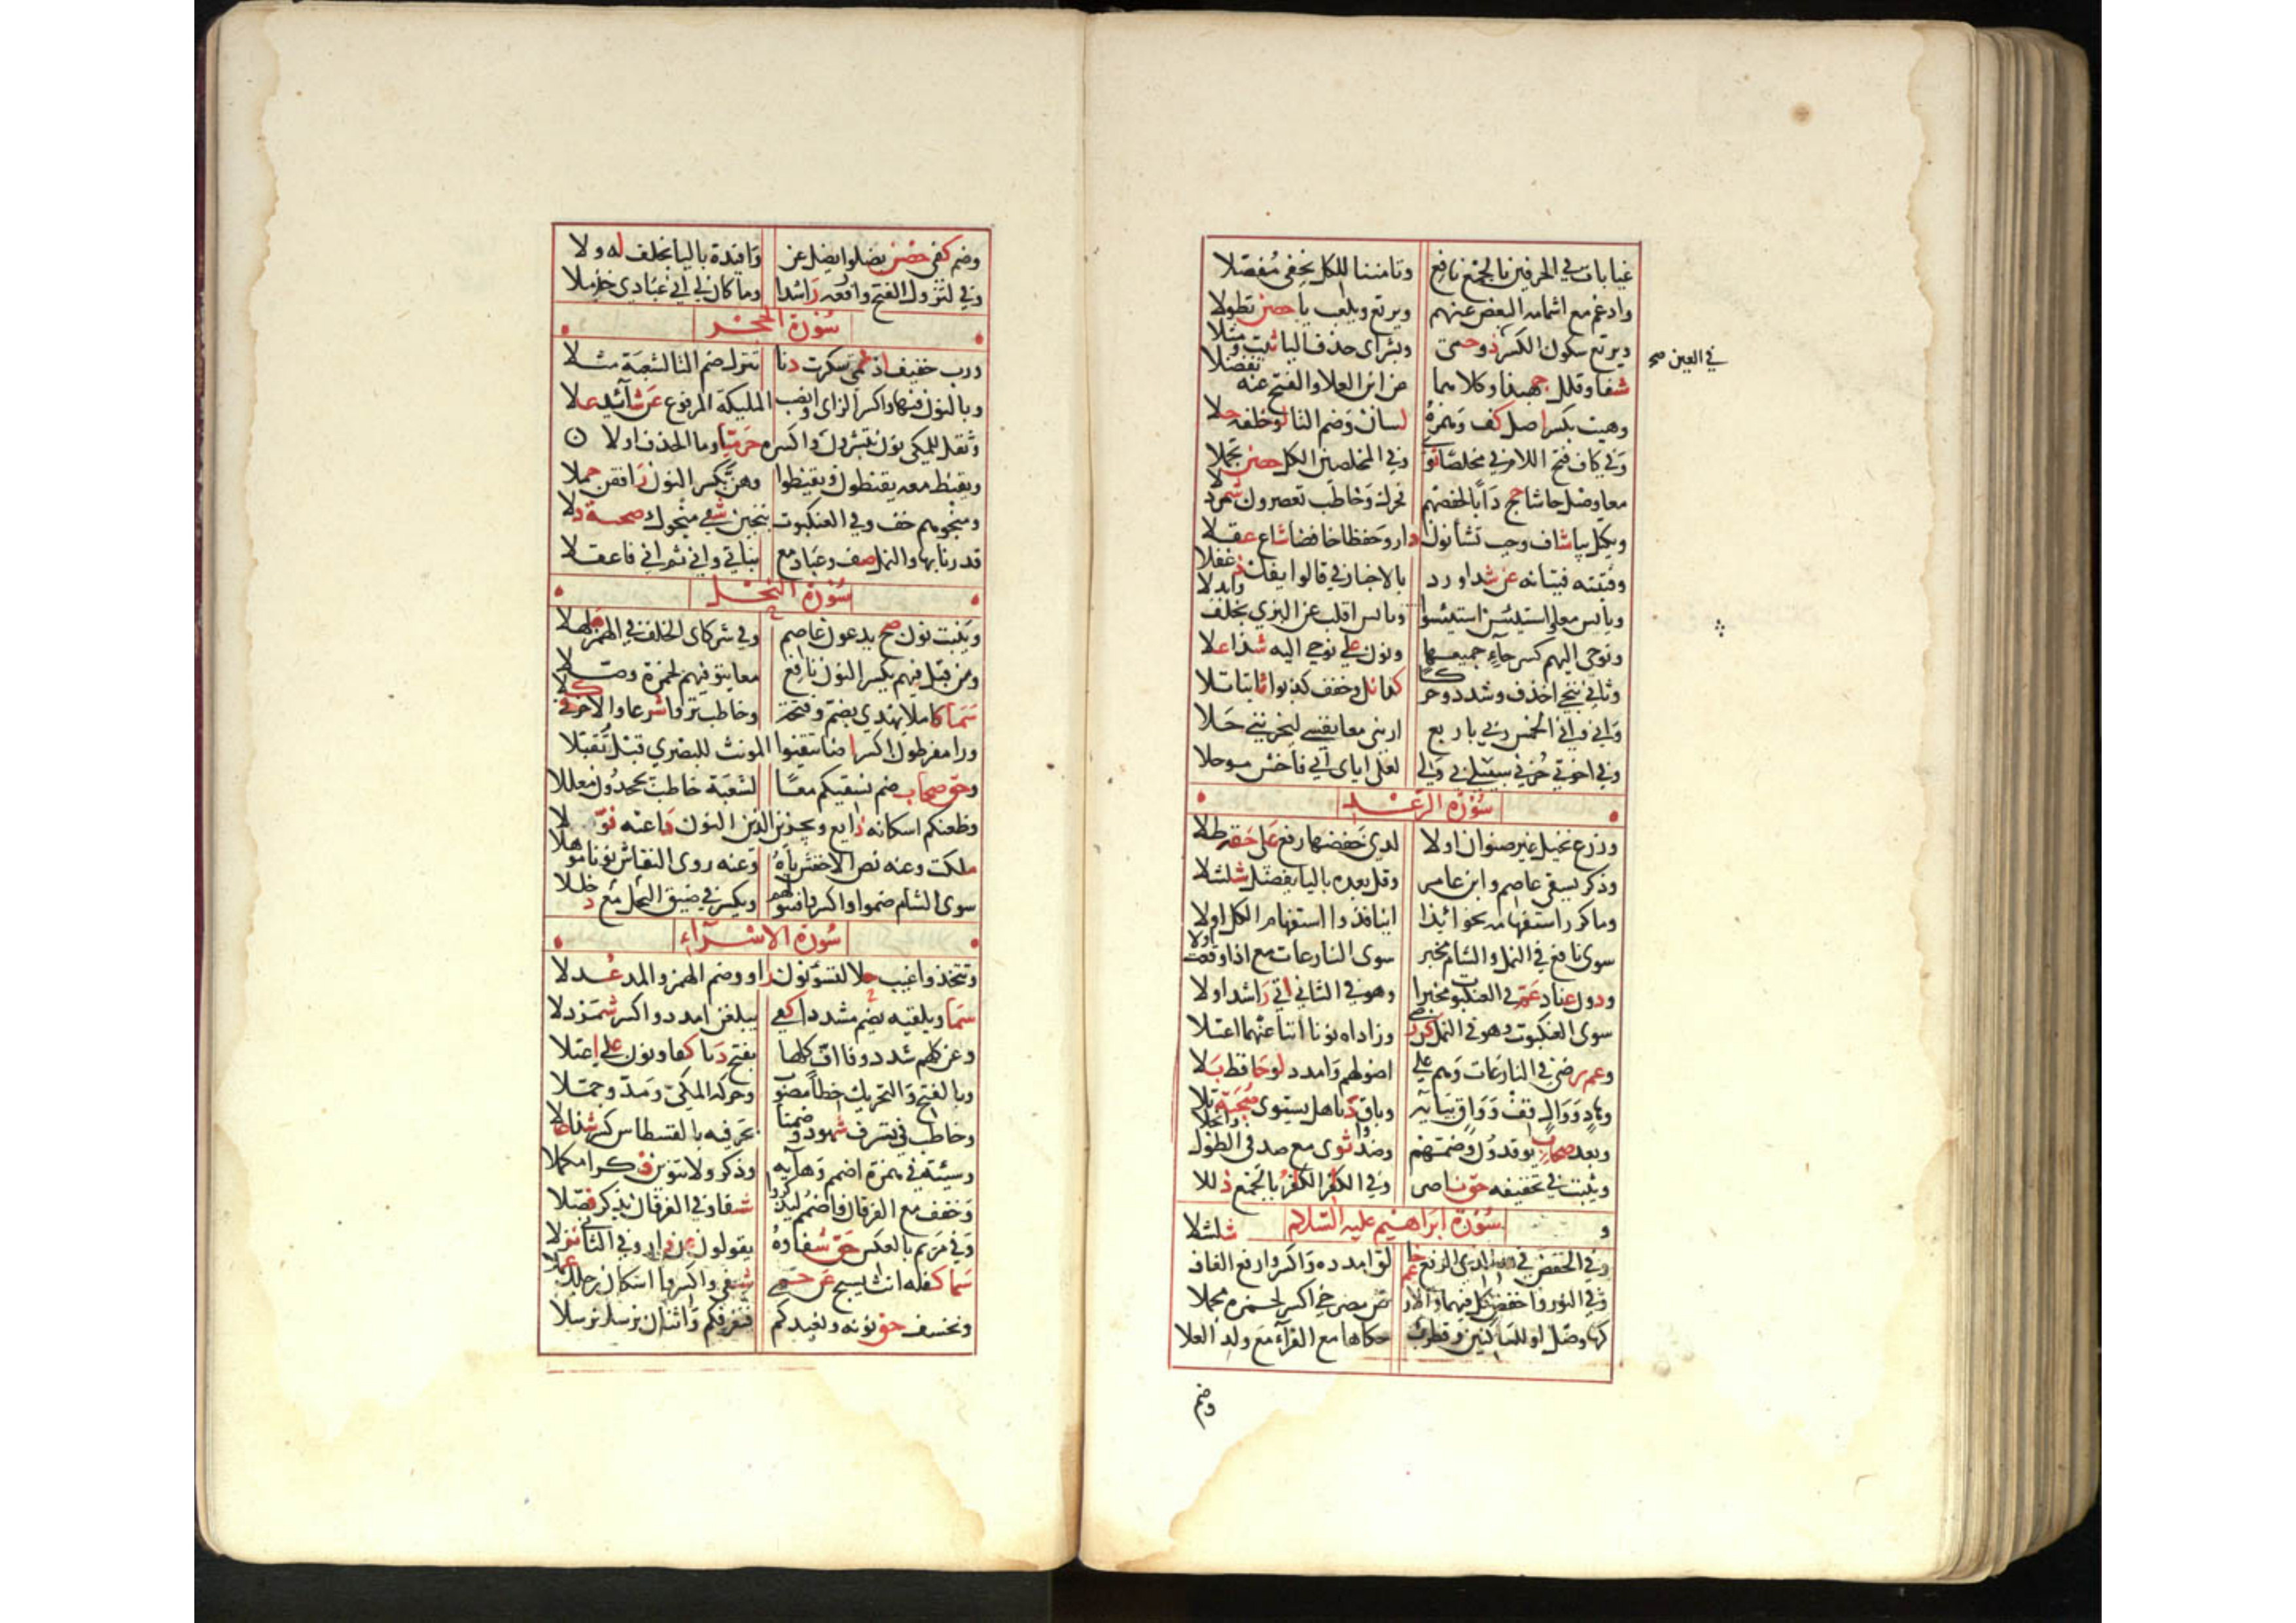 غيابات في الحرفين بالجمع نافع وتامننا للكل يخفى مفصلا
وادغم مع اشمامه البعض عنهم ويرتع ويلعب يا حصن تطولا
ويرتع سكون الكسر ذو حمى وبشراي حذف اليا ثبت وميلا
في العين صح
شفا وقلل جهبذا وكلاهما عن ابن العلا والفتح عنه تفضلا
وهيت بكسر اصل كف وهمزه لسان وضم التا لوا خلفه دلا
وفي كاف فتح اللام في مخلصا ثوى وفي المخلصين الكل حصن تجملا
معا وصل حاشا حج دابا لحفصهم فحرك وخاطب تعصرون شمردلا
ويكتل بيا شاف وحيث نشا نون دار وحفظا حافظا شاع عقلا
وفتيته فتيانه عن شذا ورد بالاخبار في قالوا ايئنك دغفلا
ويايس معا واستيئس استيئسوا وتايسوا اقلب عن البزي بخلف وابدلا
ونوحي اليهم كسر حاء جميعها ونون على نوحي اليه شذا علا
وثاني ننجي احذف وشدد وحركا كذا نل وخفف كذبوا ثابتا تلا
واني واني الخمس ربي باربع اراني معا نفسي ليحزنني حلا
وفي اخوتي حزني سبيلي بي ولي لعلي اباي ابي فاخش موحلا
سورة الرعد
وزرع نخيل غير صنوان اولا لدى خفضها رفع على حقه طلا
وذكر يسقى عاصم وابن عامر وقل بعده باليا يفضل شلشلا
وما كرر استفهامه نحو ائذا اينا فذو استفهام الكل اولا
سوى نافع في النمل والشام مخبر سوى النازعات مع اذا وقعت ولا
ودون عناد عم في العنكبوت مخبرا وهو في الثاني اتى راشدا ولا
سوى العنكبوت وهو في النمل كن رضى وزاداه نونا اننا عنهما اعتلا
وعم رضى في النازعات وهم على اصولهم وامدد لوا حافظ بلا
وهاد ووال قف وواق بيايه وباق دنا هل يستوي صحبة تلا
وبعد صحاب يوقدون وضمهم وصدوا ثوى مع صد في الطول وانجلا
ويثبت في تخفيفه حق ناصر وفي الكافر الكفار بالجمع ذللا
سورة ابراهيم عليه السلام
وفي الخفض في الله الذي الرفع عم خالق امدده واكسر وارفع القاف شلشلا
وفي النور واخفض كل فيها والارض ههنا مصرخي اكسر لحمزة مجملا
كها وصل او للساكنين وقطرب حكاها مع الفراء مع ولد العلا
وضم
وضم كفى حصن يضلوا يضل عن وافئدة باليا بخلف له ولا
وفي لتزول الفتح وارفعه راشدا وما كان لي اني عبادي خذ ملا
سورة الحجر
ورب خفيف اذ نمى سكرت دنا تنزل ضم التا لشعبة مثلا
وبالنون فيها واكسر الزاي وانصب الملئكة المرفوع عن شائد علا
وثقل للمكي نون تبشرون واكسره حرميا وما الحذف اولا
ويقنط معه يقنطون وتقنطوا وهن بكسر النون رافقن حملا
ومنجوهم خف وفي العنكبوت ننجين شفى منجوك صحبته دلا
قدرنا بها والنمل صف وعباد مع بناتي واني ثم اني فاعقلا
سورة النحل
وينبت نون صح يدعون عاصم وفي شركاي الخلف في الهمز هلهلا
ومن قبل فيهم يكسر النون نافع معا يتوفيهم لحمزة وصلا
سما كاملا يهدي بضم وفتحة وخاطب تروا شرعا والاخر في كلا
ورا مفرطون اكسر اضا يتفيؤا المونث للبصري قبل تقبلا
وحق صحاب ضم نسقيكم معا لشعبة خاطب يجحدون معللا
وظعنكم اسكانه ذايع ويجزين الذين النون داعيه نولا
ملكت وعنه نص الاخفش ياه وعنه روى النقاش نونا موهلا
سوى الشام ضموا واكسروا فتنوا لهم ويكسر في ضيق النحل مع دخللا
سورة الاسراء
ويتخذوا غيب حلا لنسوء نون راو وضم الهمز والمد عدلا
سما ويلقيه يضم مشددا كفى يبلغن امدده واكسر شمردلا
وعن كلهم شدد وفا اف كلها بفتح دنا كفوا ونون على اعتلا
وبالفتح والتحريك خطا مصوب وحركه المكي ومد وجملا
وخاطب في يسرف شهود وضمنا بحرفيه بالقسطاس كسر شذا علا
وسيئة في همزه اضمم وهائه وذكر ولا تنوين ذكرا مكملا
وخفف مع الفرقان واضمم ليذكروا شفاء وفي الفرقان يذكر فصلا
وفي مريم بالعكس حق شفاؤه يقولون عن دار وفي الثاني نزلا
سما كفله انث يسبح عن حمى شفى واكسروا اسكان رجلك عملا
ونخسف حق نونه ونعيدكم فنغرقكم واثنان نرسل نرسلا